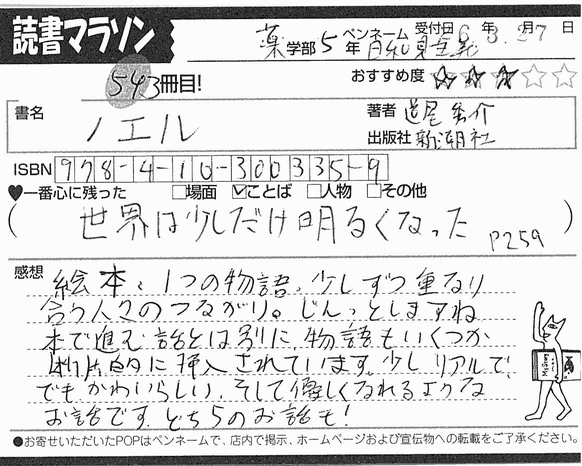 読書マラソン
薬学部5年 ペンネーム 受付日 6年3月27日
543冊目!
おすすめ度 ★★★☆☆
書名 ノエル
著者 道尾秀介
出版社 新潮社
ISBN 978-4-10-300335-9
♥一番心に残った □場面 ☑ことば □人物 □その他
(世界は少しだけ明るくなった P259)
感想
絵本、1つの物語、少しずつ重なり
合う人々のつながり。じんっとしますね
本で進む話とは別に、物語もいくつか
断片的に挿入されています。少しリアルで、
でもかわいらしい、そして優しくなれるような
お話です。どちらのお話も!
●お寄せいただいたPOPはペンネームで、店内で掲示、ホームページおよび宣伝物への転載をご了承ください。